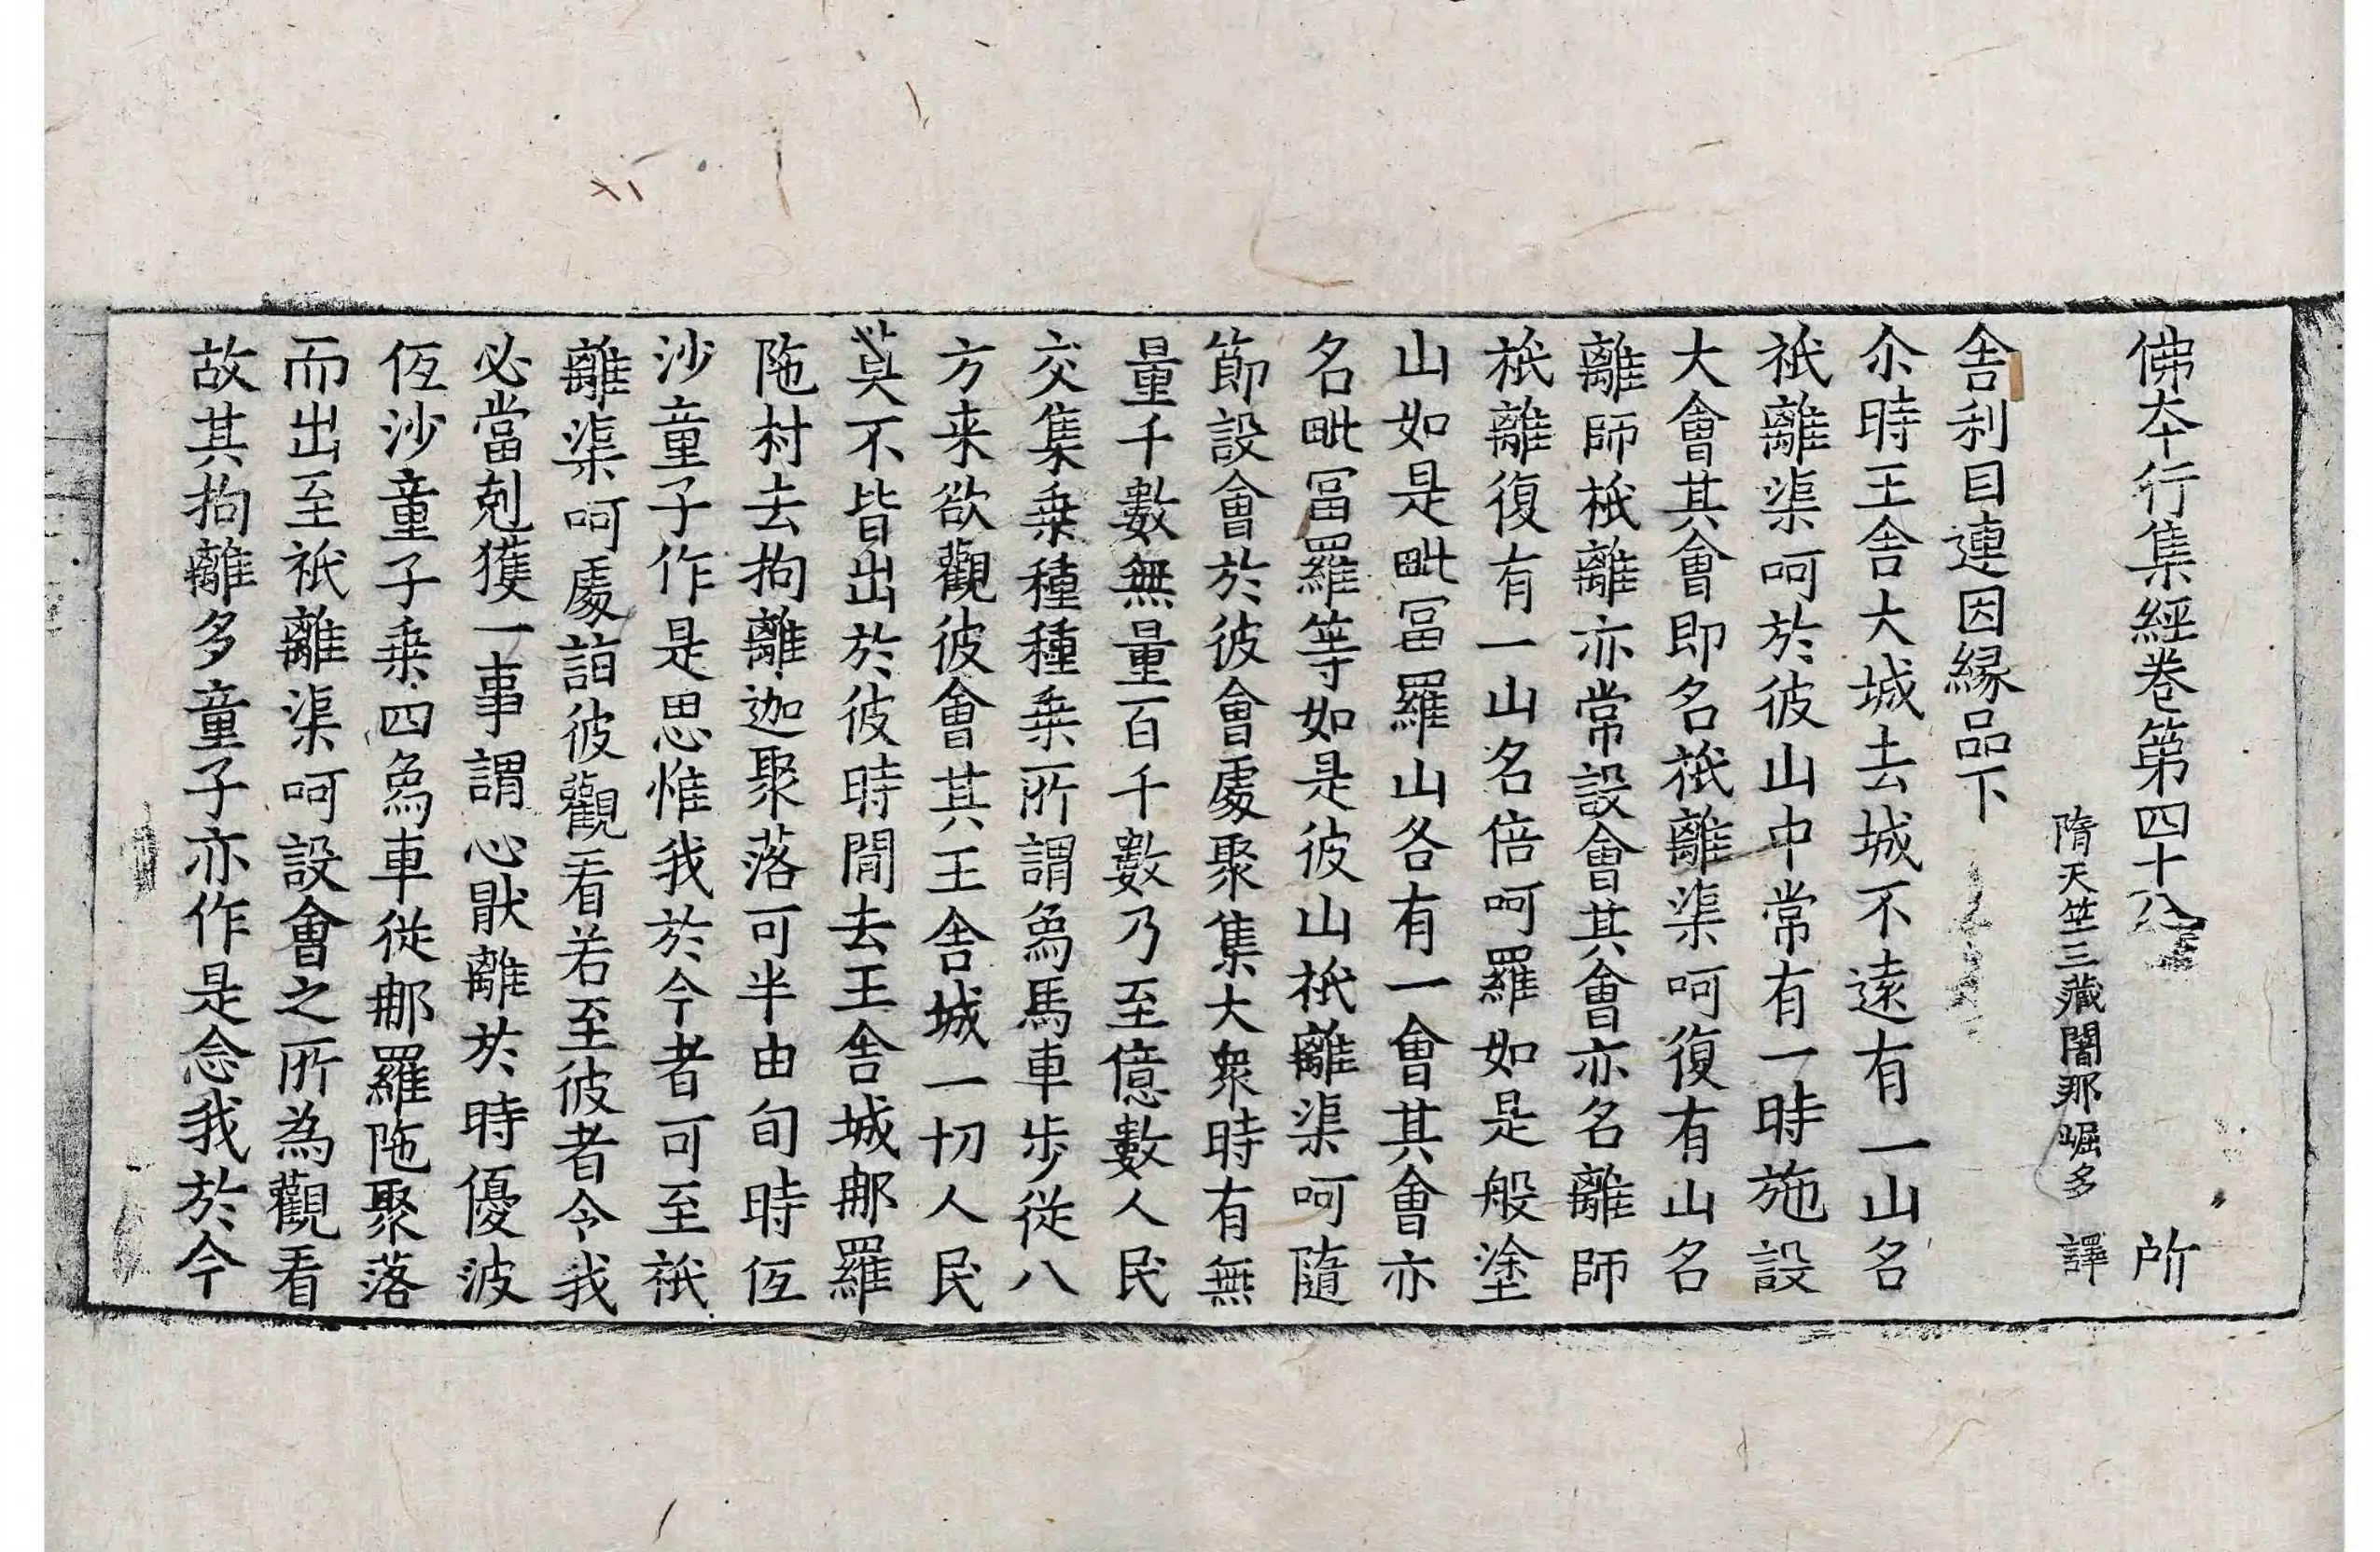 佛本行集經卷第四十八 所
隋天竺三藏闍那崛多 譯
舎利目連因縁品下
尒時王舎大城去城不遠有一山名
祇離渠呵於彼山中常有一時施設
大㑹其㑹即名祇離渠呵復有山名
離師祇離亦常設㑹其㑹亦名離師
祇離復有一山名倍呵羅如是般塗
山如是毗冨羅山各有一㑹其㑹亦
名毗冨羅等如是彼山祇離渠呵隨
節設㑹於彼㑹處聚集大衆時有無
量千數無量百千數乃至億數人民
交集乗種種乗所謂象馬車步從八
方来欲觀彼㑹其王舎城一切人民
莫不皆出於彼時間去王舎城那羅
陁村去拘離迦聚落可半由旬時伍
沙童子作是思惟我於今者可至祇
離渠呵處詣彼觀看若至彼者令我
必當剋獲一事謂心猒離於時優波
伍沙童子乗四象車從那羅陁聚落
而出至祇離渠呵設㑹之所為觀看
故其拘離多童子亦作是念我於今